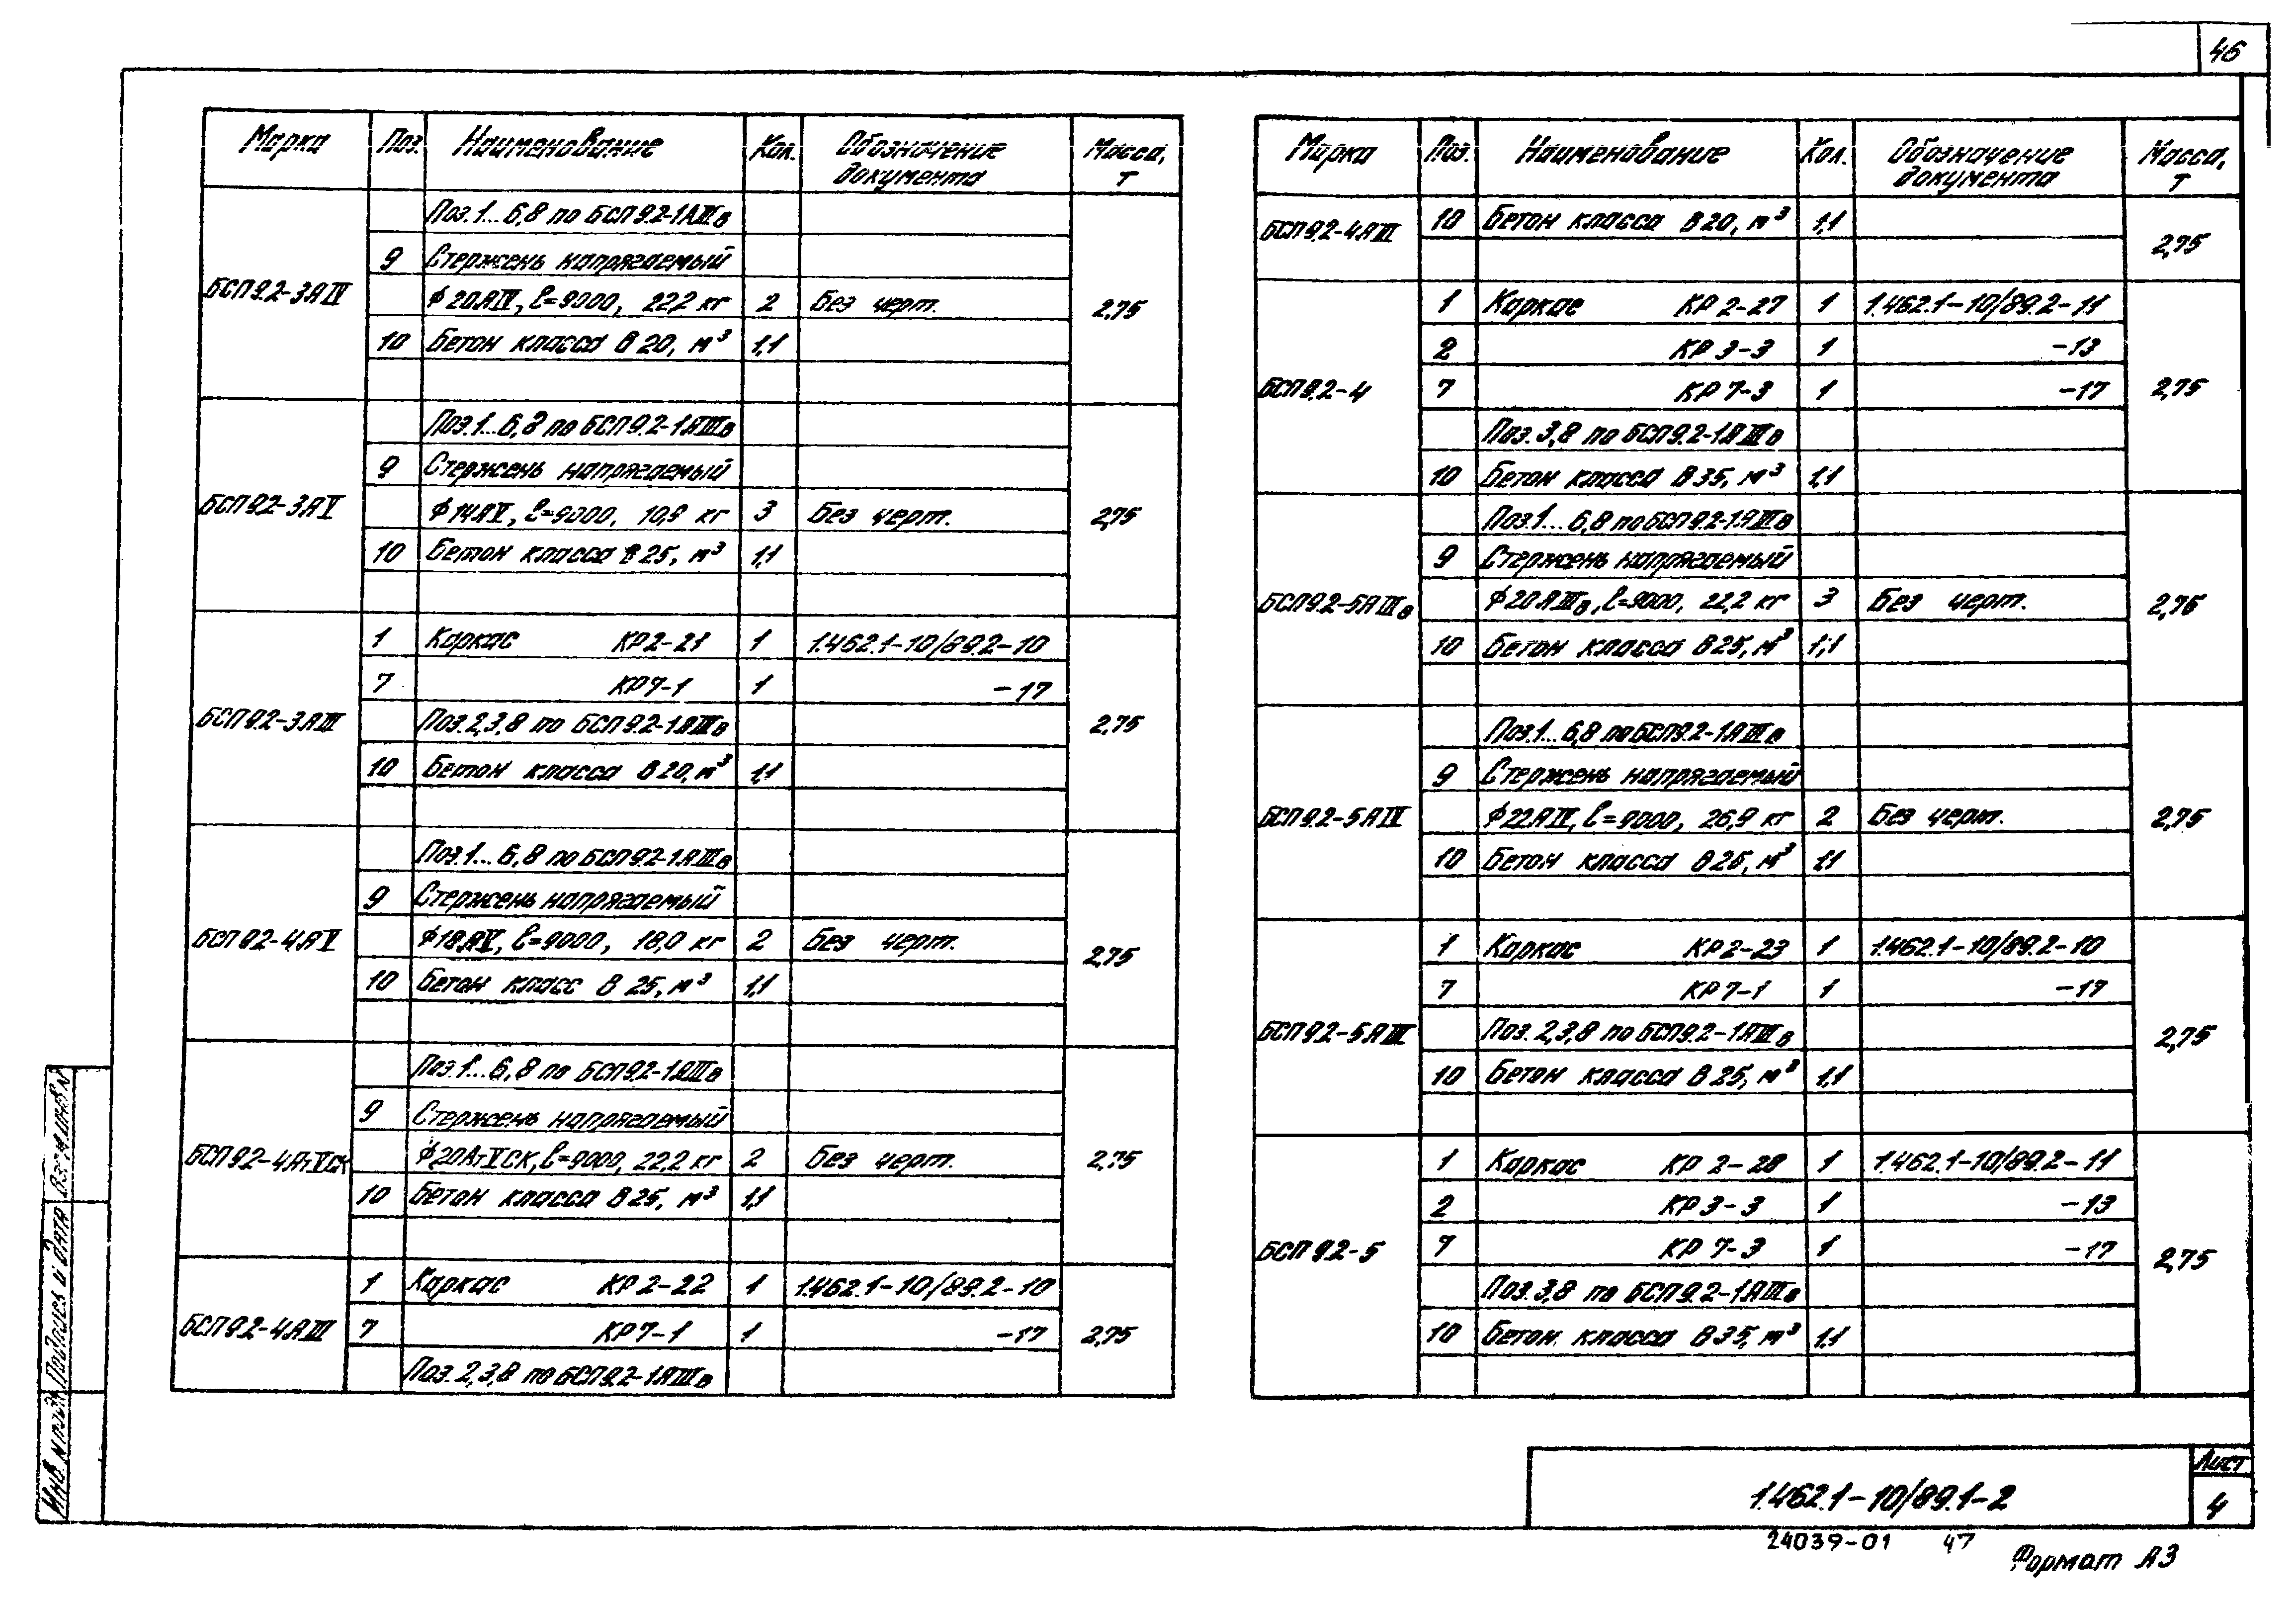 46
Марка Поз. Наименование Кол. Обозначение документа Масса, т
БСП9.2-3АIV 2,75
Поз.1...6,8 по БСП9.2-1АIIIв
9 Стержень напрягаемый
ф20АIV, ℓ=9000, 22,2 кг 2 Без черт.
10 Бетон класса В20, м³ 1,1
БСП9.2-3АV 2,75
Поз.1...6,8 по БСП9.2-1АIIIв
9 Стержень напрягаемый
ф14АV, ℓ=9000, 10,9 кг 3 Без черт.
10 Бетон класса В25, м³ 1,1
БСП9.2-3АIII 2,75
1 Каркас КР2-21 1 1.462.1-10/89.2-10
7 КР7-1 1 -17
Поз.2,3,8 по БСП9.2-1АIIIв
10 Бетон класса В20, м³ 1,1
БСП9.2-4АV 2,75
Поз.1...6,8 по БСП9.2-1АIIIв
9 Стержень напрягаемый
ф18АV, ℓ=9000, 18,0 кг 2 Без черт.
10 Бетон класс В 25, м³ 1,1
БСП9.2-4АтVСК 2,75
Поз.1...6,8 по БСП9.2-1АIIIв
9 Стержень напрягаемый
ф20АтVСК, ℓ=9000, 22,2 кг 2 Без черт.
10 Бетон класса В25, м³ 1,1
БСП9.2-4АIII 2,75
1 Каркас КР2-22 1 1.462.1-10/89.2-10
7 КР7-1 1 -17
Поз.2,3,8 по БСП9.2-1АIIIв
Марка Поз. Наименование Кол. Обозначение документа Масса, т
БСП9.2-4АIII 2,75
10 Бетон класса В20, м³ 1,1
БСП9.2-4 2,75
1 Каркас КР2-27 1 1.462.1-10/89.2-11
2 КР3-3 1 -13
7 КР7-3 1 -17
Поз.3,8 по БСП9.2-1АIIIв
10 Бетон класса В35, м³ 1,1
БСП9.2-5АIIIв 2,75
Поз.1...6,8 по БСП9.2-1АIIIв
9 Стержень напрягаемый
ф20АIIIв, ℓ=9000, 22,2 кг 3 Без черт.
10 Бетон класса В25, м³ 1,1
БСП9.2-5АIV 2,75
Поз.1...6,8 по БСП9.2-1АIIIв
9 Стержень напрягаемый
ф22АIV, ℓ=9000, 26,9 кг 2 Без черт.
10 Бетон класса В25, м³ 1,1
БСП9.2-5АIII 2,75
1 Каркас КР2-23 1 1.462.1-10/89.2-10
7 КР7-1 1 -17
Поз.2,3,8 по БСП9.2-1АIIIв
10 Бетон класса В25, м³ 1,1
БСП9.2-5 2,75
1 Каркас КР2-28 1 1.462.1-10/89.2-11
2 КР3-3 1 -13
7 КР7-3 1 -17
Поз.3,8 по БСП9.2-1АIIIв
10 Бетон класса В35, м³ 1,1
Инв.N подл. Подпись и дата Взам.инв.N
1.462.1-10/89.1-2
Лист
4
24039-01 47
Формат А3